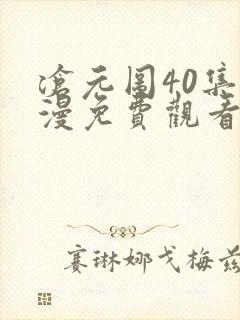 滄元圖40集
漫免費觀看
賽琳娜戈梅茲